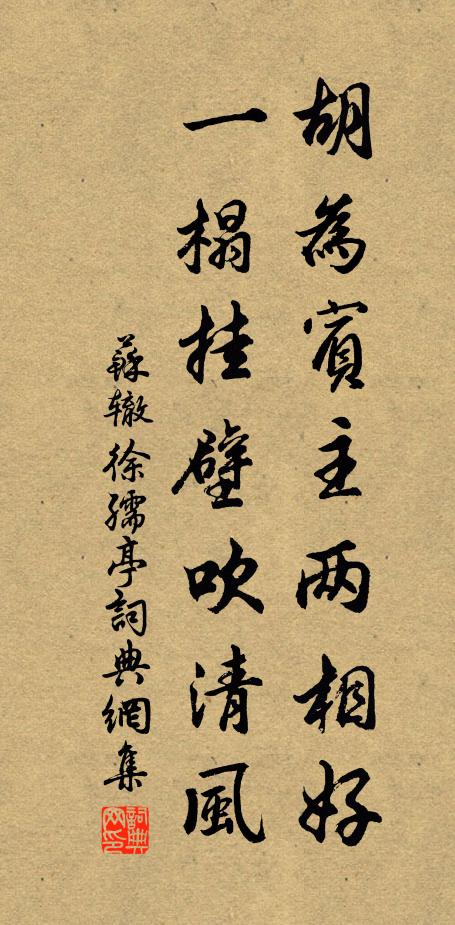 胡為賓主两相好
一榻挂壁吹清風
蘇辙徐孺亭詞典網集
詞典网印